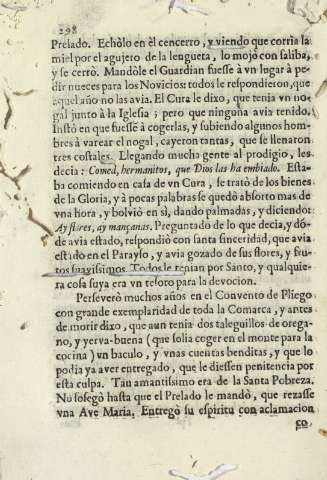 298
Prelado. Echòlo en èl cencerro, y viendo que corria la
miel por el agujero de la lengueta, lo mojò con saliba,
y se cerrò. Mandòle el Guardian fuesse à vn lugar à pe-
dir nueces para los Novicios: todos le respondieron, que
aquel año no las avia. El Cura le dixo, que tenia vn no-
gal junto à la Iglesia; pero que ninguna avia tenido.
Instò en que fuesse à cogerlas, y subiendo algunos hom-
bres à varear el nogal, cayeron tantas, que se llenaron
tres costales. Llegando mucha gente al prodigio, les
decia: Comed, hermanitos, que Dios las ha embiado. Esta-
ba comiendo en casa de vn Cura, se tratò de los bienes
de la Gloria, y à pocas palabras se quedò absorto mas de
vna hora, y bolviò en sì, dando palmadas, y diciendo:
Ay flores, ay mançanas. Preguntado de lo que decia, y dò-
de avia estado, respondiò con santa sinceridad, que avia
estado en el Parayso, y avia gozado de sus flores, y fru-
tos suavissimos. Todos le tenian por Santo, y qualquie-
ra cosa suya era vn tesoro para la devocion.
Perseverò muchos años en el Convento de Pliego
con grande exemplaridad de toda la Comarca, y antes
de morir dixo, que aun tenia dos taleguillos de orega-
no, y yerva-buena (que solia coger en el monte para la
cocina) vn baculo, y vnas cuentas benditas, y que lo
podia ya aver entregado, que le diessen penitencia por
esta culpa. Tan amantissimo era de la Santa Pobreza.
No sosegò hasta que el Prelado le mandò, que rezasse
vna Ave Maria. Entregò su espiritu con aclamacion
co